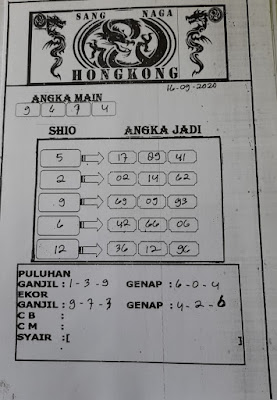 SANG NAGA
HONGKONG
16-09-2020
ANGKA MAIN
9 6 7 4
SHIO ANGKA JADI
5 17 89 41
2 02 14 62
9 69 09 93
6 42 66 06
12 36 12 96
PULUHAN
GANJIL : 1-3-9 GENAP : 6-0-4
EKOR
GANJIL : 9-7-3 GENAP : 4-2-6
C B :
C M :
SYAIR :[ ]